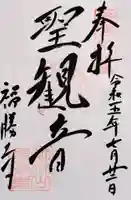 奉拝 令和五年七月廿二日
聖観音
福勝寺